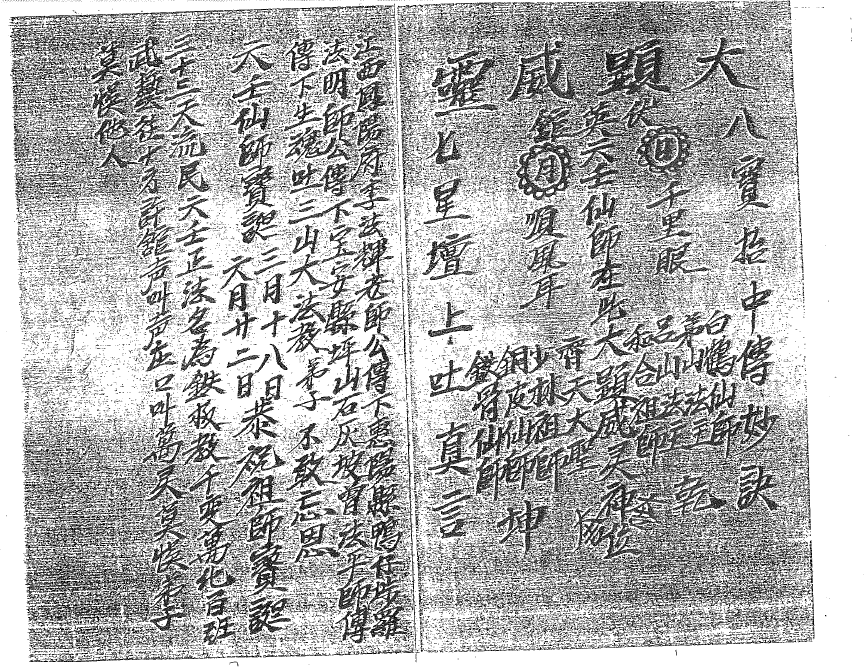 大八寶招中傳妙訣
白鶴仙師
第山法主
呂山法主
和合祖師
乾
顕
伏
日
千里眼
英六壬仙師在此大顕威灵神位
威
鎧
月
順風耳
齊天大聖
少林祖師
銅皮仙師
鉄骨仙師
坤
靈七星壇上吐真言
江西陽府李法輝老師公傳下惠陽縣鴨仔步羅
法明師公傳下宝安縣坪山石灰坡曾法平師傅
傳下生魂吐三山大法教弟子不敢忘恩
六壬仙師寶誕
三月十八日
六月廿二日
恭祝祖師寶誕
三十三天流民六壬正法名為鉄板教千变萬化百班
武藝在十方許舘声叫声在口叫萬灵莫悮弟子
莫悮他人